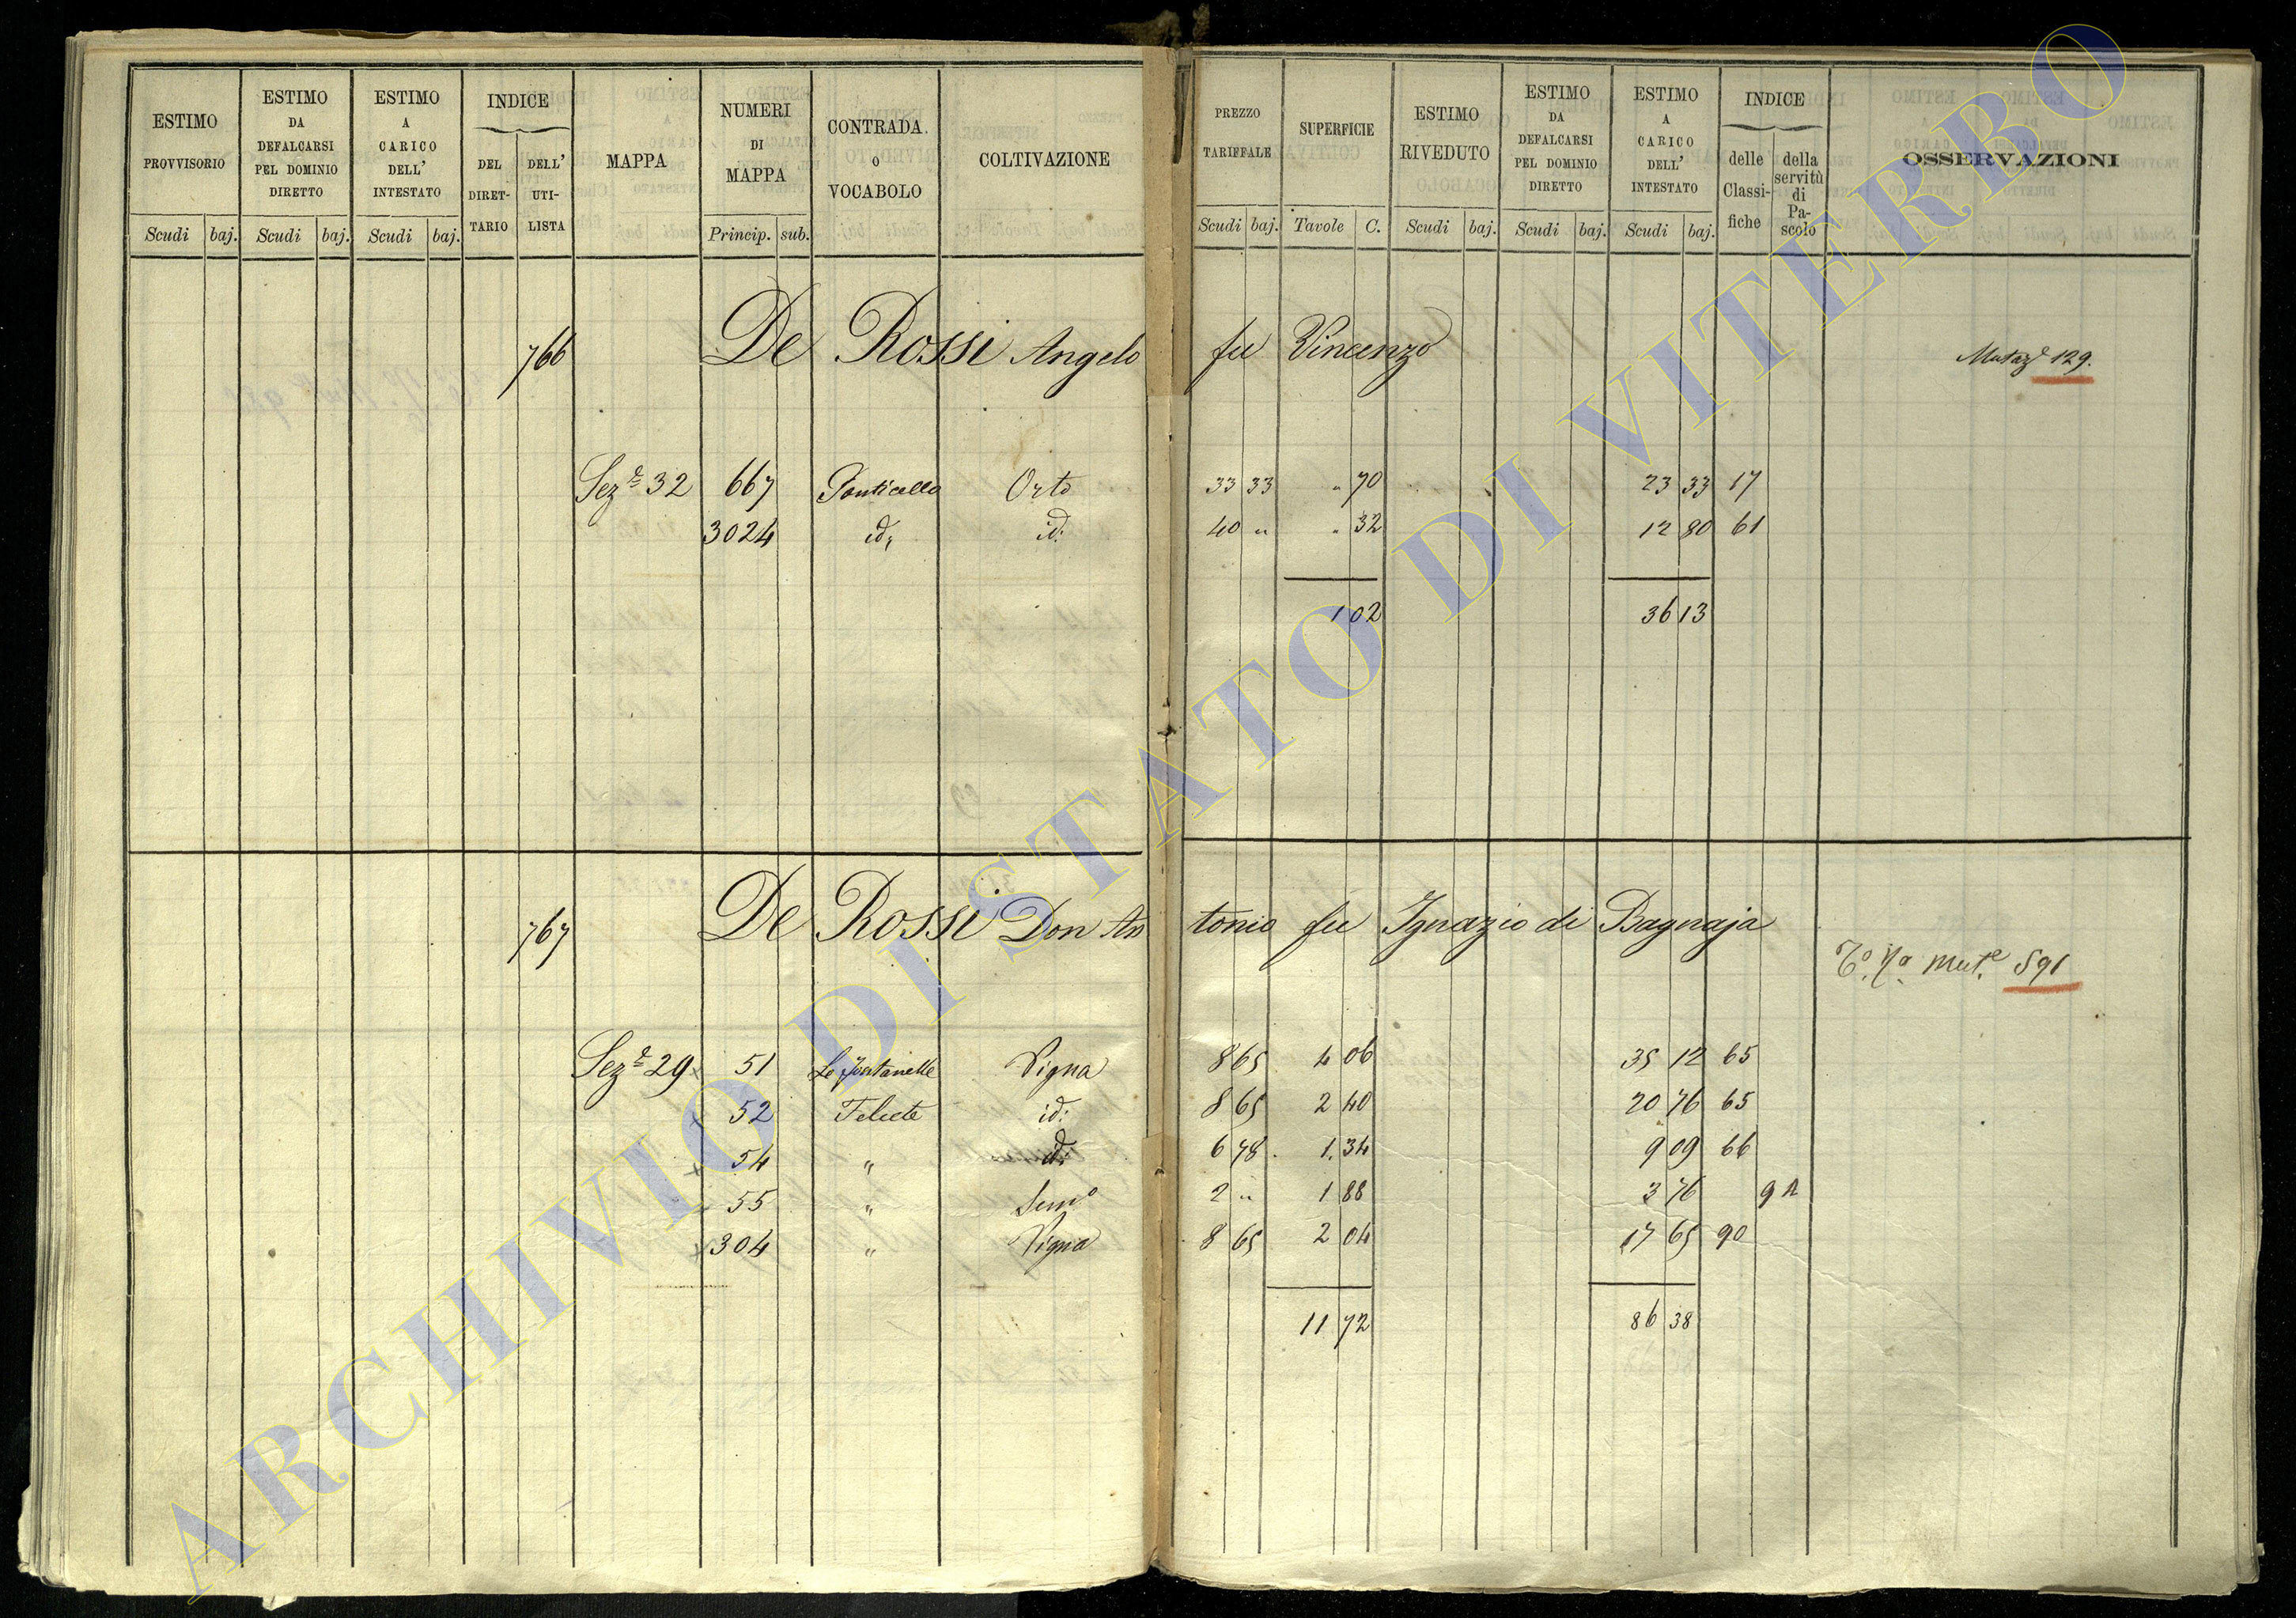 ESTIMO PROVVISORIO Scudi baj.
ESTIMO DA DEFALCARSI PEL DOMINIO DIRETTO Scudi baj.
ESTIMO A CARICO DELL' INTESTATO Scudi baj.
INDICE DEL DIRET-TARIO DELL' UTI-LISTA
MAPPA
NUMERI DI MAPPA Princip. sub.
CONTRADA O VOCABOLO
COLTIVAZIONE
PREZZO TARIFFALE Scudi baj.
SUPERFICIE Tavole C.
ESTIMO RIVEDUTO Scudi baj.
ESTIMO DA DEFALCARSI PEL DOMINIO DIRETTO Scudi baj.
ESTIMO A CARICO DELL' INTESTATO Scudi baj.
INDICE delle Classi-fiche della servitù di Pa-scolo
OSSERVAZIONI
766 De Rossi Angelo fu Vincenzo Mutaz.e 129.
Sez.e 32 667 Ponticello Orto 33 33 " 70 23 33 17
3024 id. id. 40 " " 32 12 80 61
1 02 36 13
767 De Rossi Don Antonio fu Ignazio di Bagnaja
T.o I.o Mut.e 591
Sez.e 29 51 Le Fontanelle Vigna 8 65 4 06 35 12 65
52 id. 8 65 2 40 20 76 65
54 " id. 6 78 1 34 9 09 66
55 " Sem.o 2 " 1 88 3 76
304 " Vigna 8 65 2 04 17 65 90
11 72 86 38
ARCHIVIO DI STATO DI VITERBO